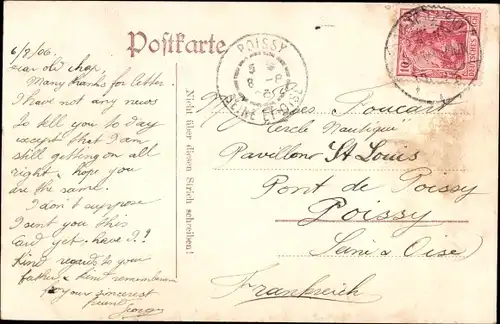 Postkarte
6/8/06.
Dear old chap.
Many thanks for letter.
I have not any news
to tell you to day
except that I am
still getting on all
right & hope you
are the same.
I don't suppose
I sent you this
card yet, have I?
Kind regards to your
father & kind
your sincerest
friend
Nicht über diesen Strich schreiben!
POISSY
SEINE ET OISE
DEUTSCHES REICH
10
Foucart
Cercle Nautique
Pavillon St Louis
Pont de Poissy
Poissy
(Seine & Oise)
Frankreich